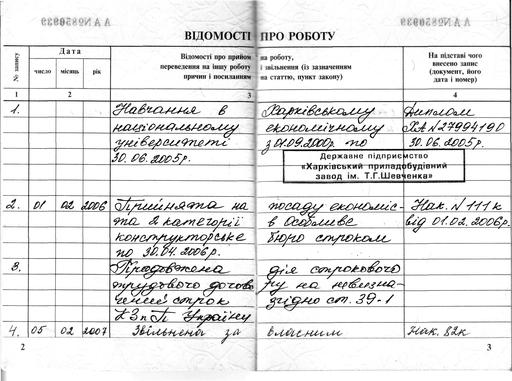 АА№850939 АА№850939
ВІДОМОСТІ ПРО РОБОТУ
№ запису
Дата
число місяць рік
Відомості про прийом на роботу,
переведення на іншу роботу і звільнення (із зазначенням
причин і посиланням на статтю, пункт закону)
На підставі чого
внесено запис
(документ, його
дата і номер)
1 2 3 4
1. Навчання в Харківському Диплом
національному економічному ХА N27994190
університеті з 01.09.2000р. по 30.06.2005р.
30.06.2005р.
Державне підприємство
«Харківський приладобудівний
завод ім. Т.Г.Шевченка»
2. 01 02 2006 Прийнята на посаду економіс- Нак. N 111к
та 2 категорії в Особливе від 01.02.2006р.
конструкторське бюро строком
по 30.04.2006р.
3. Продовжена дія строкового
трудового догово ру на невизна-
чений строк згідно ст. 39-1
КЗпП України
4. 05 02 2007 Звільнена за власним Нак. 82к
2 3